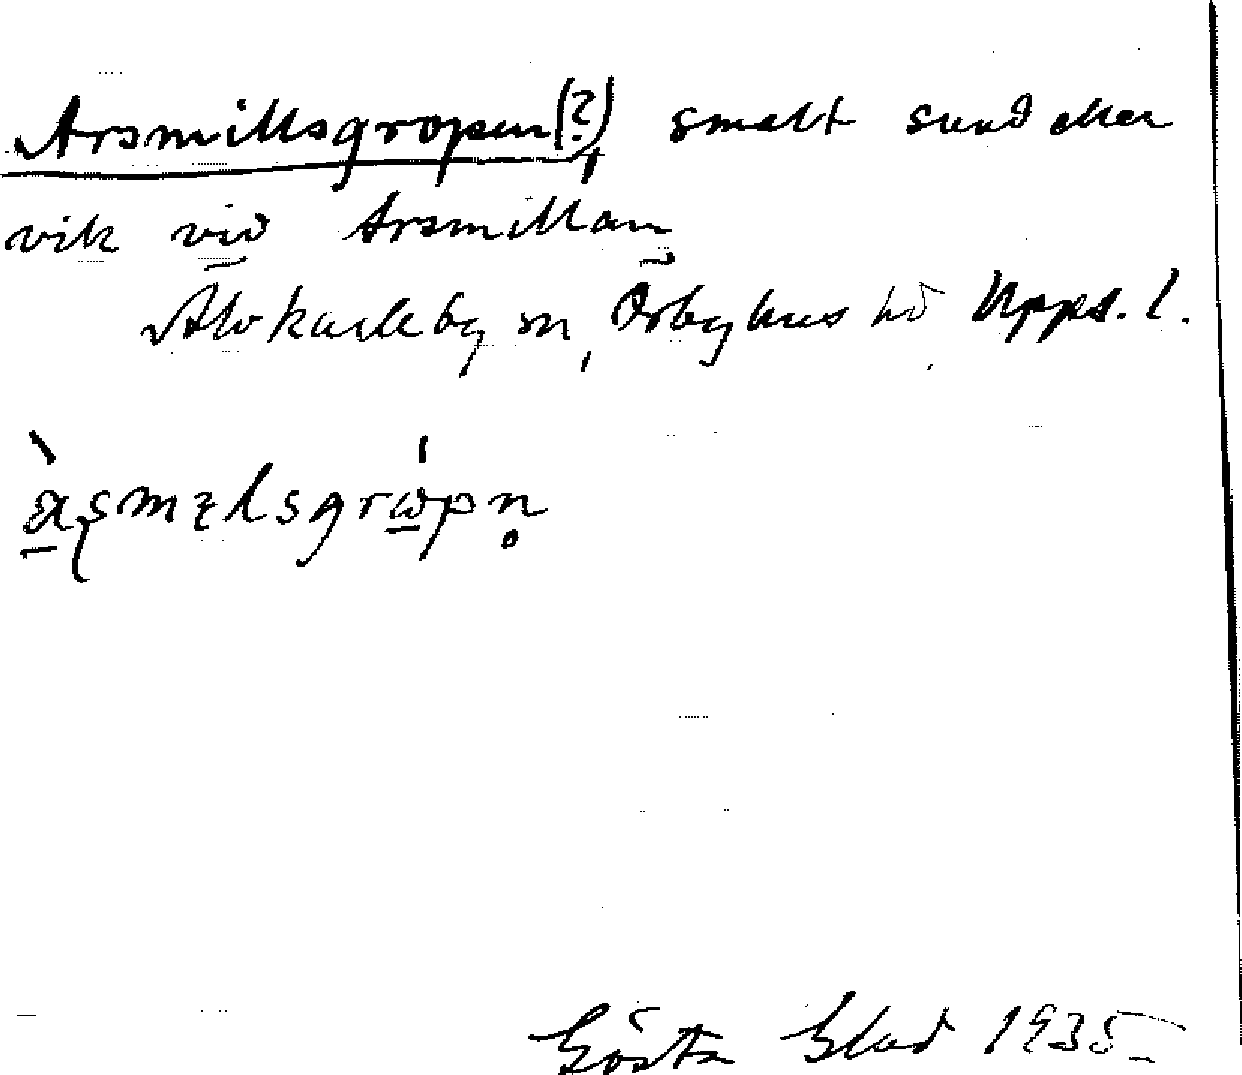 Arsmillsgropen(?), smalt sund eller
vik vid Arsmillan
Älvkarleby sn, Örbyhus hd Upps. l.
Gösta Blad 1935